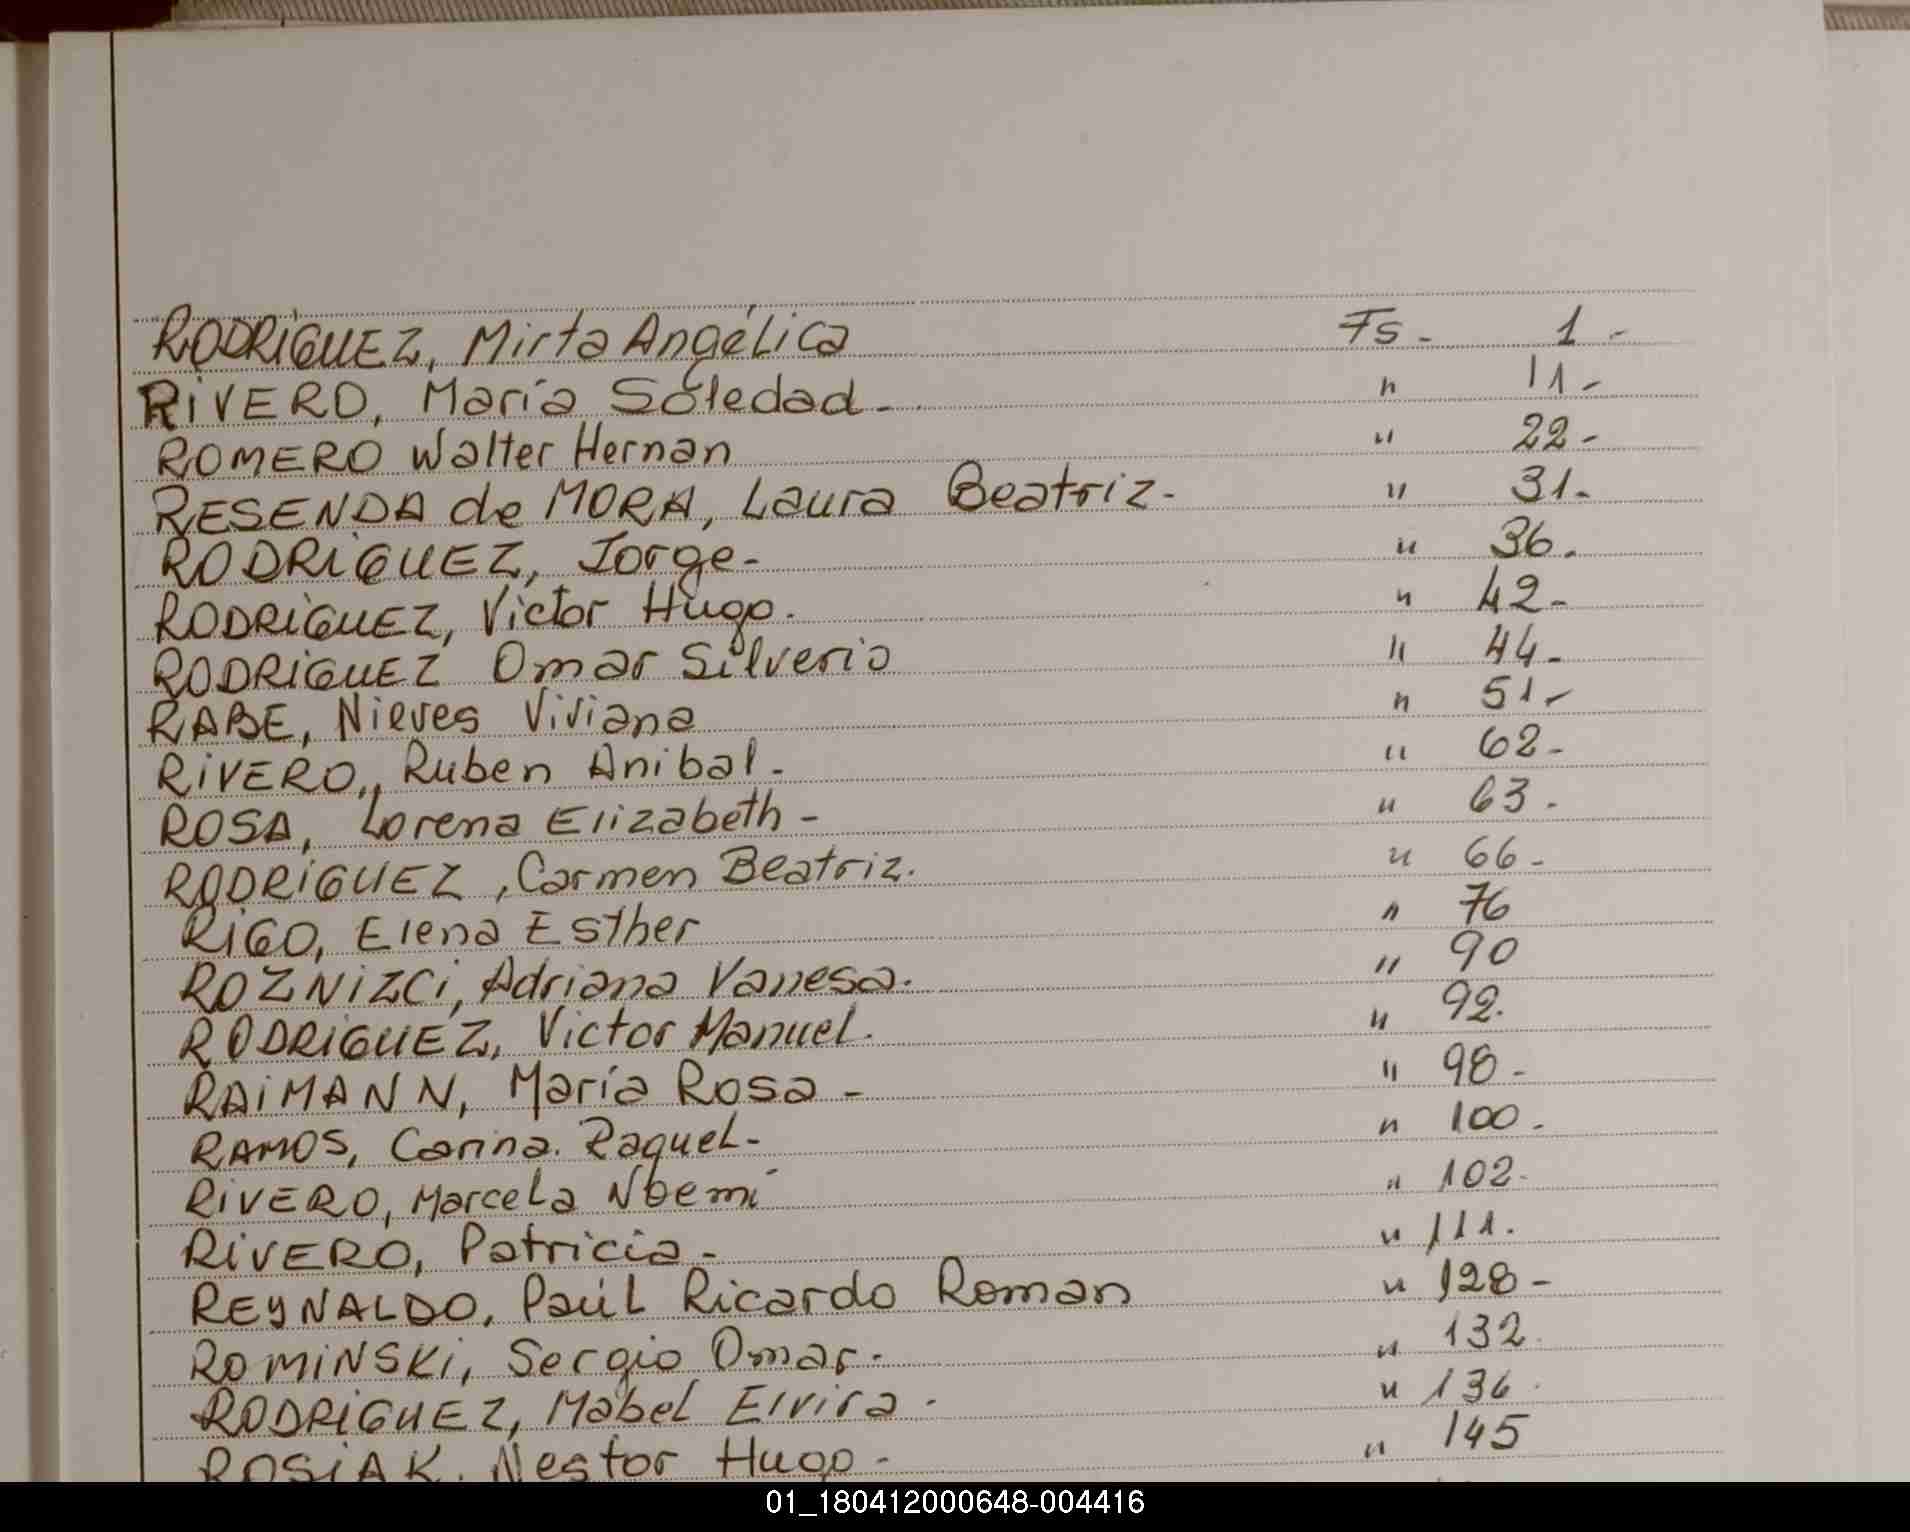 RODRÍGUEZ, Mirta Angélica Fs - 1 -
RIVERO, María Soledad - " 11 -
ROMERO Walter Hernan " 22 -
RESENDA de MORA, Laura Beatriz - " 31 -
RODRIGUEZ, Jorge - " 36.
RODRIGUEZ, Victor Hugo. " 42 -
RODRIGUEZ Omar Silverio " 44 -
RABE, Nieves Viviana " 51 -
RIVERO, Ruben Anibal - " 62 -
ROSA, Lorena Elizabeth - " 63 -
RODRIGUEZ, Carmen Beatriz. " 66 -
RIGO, Elena Esther " 76
ROZNIZCI, Adriana Vanesa. " 90
RODRIGUEZ, Victor Manuel. " 92.
RAIMANN, María Rosa - " 98 -
RAMOS, Carina Raquel - " 100 -
RIVERO, Marcela Noemí " 102 -
RIVERO, Patricia - " 111.
REYNALDO, Paúl Ricardo Roman " 128 -
ROMINSKI, Sergio Omar - " 132.
RODRIGUEZ, Mabel Elvira - " 136.
ROSIAK, Nestor Hugo - " 145
01_180412000648-004416